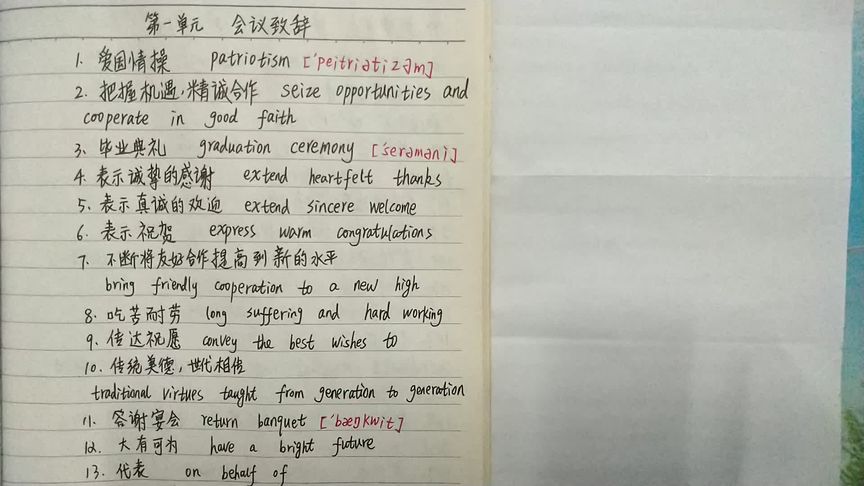 第一单元 会议致辞
1. 爱国情操 patriotism ['peitriətizəm]
2. 把握机遇,精诚合作 seize opportunities and
cooperate in good faith
3. 毕业典礼 graduation ceremony ['serəməni]
4. 表示诚挚的感谢 extend heartfelt thanks
5. 表示真诚的欢迎 extend sincere welcome
6. 表示祝贺 express warm congratulations
7. 不断将友好合作提高到新的水平
bring friendly cooperation to a new high
8. 吃苦耐劳 long suffering and hard working
9. 传达祝愿 convey the best wishes to
10. 传统美德,世代相传
traditional virtues taught from generation to generation
11. 答谢宴会 return banquet ['bæŋkwit]
12. 大有可为 have a bright future
13. 代表 on behalf of